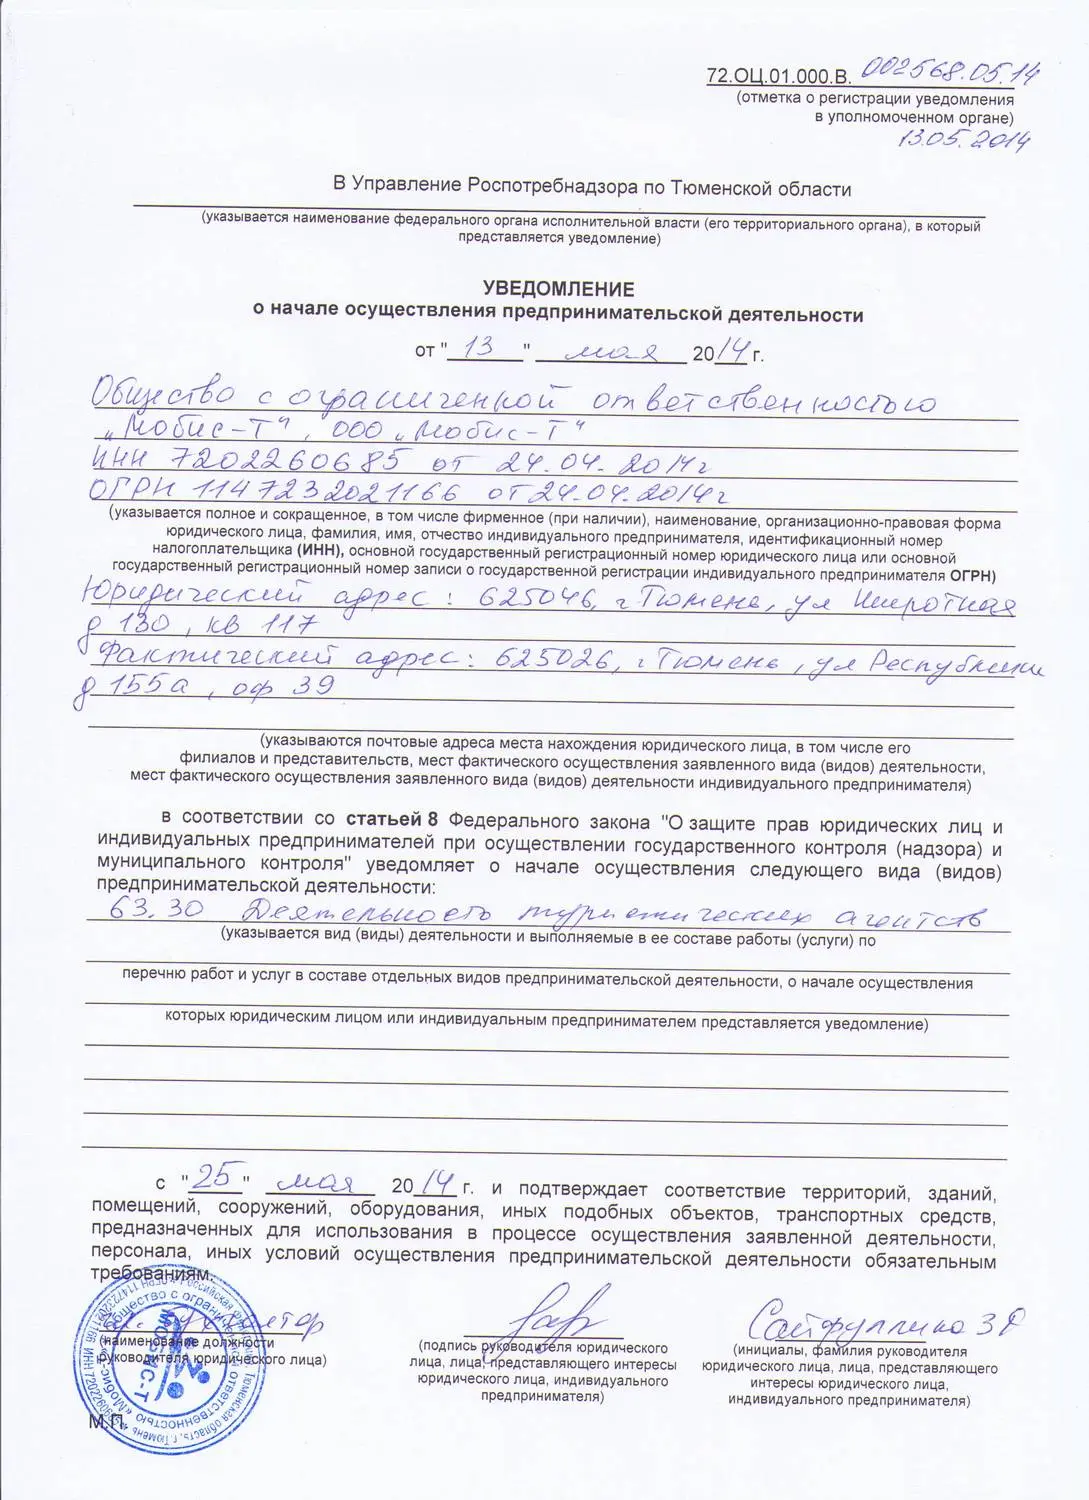 72.ОЦ.01.000.В. 002568.05.14
(отметка о регистрации уведомления
в уполномоченном органе)
13.05.2014
В Управление Роспотребнадзора по Тюменской области
(указывается наименование федерального органа исполнительной власти (его территориального органа), в который
представляется уведомление)
УВЕДОМЛЕНИЕ
о начале осуществления предпринимательской деятельности
от " 13 " мая 2014 г.
Общество с ограниченной ответственностью
„Мобис-Т", ООО „Мобис-Т"
ИНН 7202260685 от 24.04.2014г
ОГРН 1147232021166 от 24.04.2014г
(указывается полное и сокращенное, в том числе фирменное (при наличии), наименование, организационно-правовая форма
юридического лица, фамилия, имя, отчество индивидуального предпринимателя, идентификационный номер
налогоплательщика (ИНН), основной государственный регистрационный номер юридического лица или основной
государственный регистрационный номер записи о государственной регистрации индивидуального предпринимателя ОГРН)
Юридический адрес: 625046, г Тюмень, ул Широтная
д 130, кв 117
Фактический адрес: 625026, г Тюмень, ул Республики
д 155а, оф 39
(указываются почтовые адреса места нахождения юридического лица, в том числе его
филиалов и представительств, мест фактического осуществления заявленного вида (видов) деятельности,
мест фактического осуществления заявленного вида (видов) деятельности индивидуального предпринимателя)
в соответствии со статьей 8 Федерального закона "О защите прав юридических лиц и
индивидуальных предпринимателей при осуществлении государственного контроля (надзора) и
муниципального контроля" уведомляет о начале осуществления следующего вида (видов)
предпринимательской деятельности:
63.30 Деятельность туристических агентств
(указывается вид (виды) деятельности и выполняемые в ее составе работы (услуги) по
перечню работ и услуг в составе отдельных видов предпринимательской деятельности, о начале осуществления
которых юридическим лицом или индивидуальным предпринимателем представляется уведомление)
с "25" мая 2014 г. и подтверждает соответствие территорий, зданий,
помещений, сооружений, оборудования, иных подобных объектов, транспортных средств,
предназначенных для использования в процессе осуществления заявленной деятельности,
персонала, иных условий осуществления предпринимательской деятельности обязательным
требованиям.
директор
(наименование должности
руководителя юридического лица)
(подпись руководителя юридического
лица, лица, представляющего интересы
юридического лица, индивидуального
предпринимателя)
Сайфуллина ЗР
(инициалы, фамилия руководителя
юридического лица, лица, представляющего
интересы юридического лица,
индивидуального предпринимателя)
М.П.
Общество с ограниченной ответственностью «Мобис-Т»
МОБИС-Т